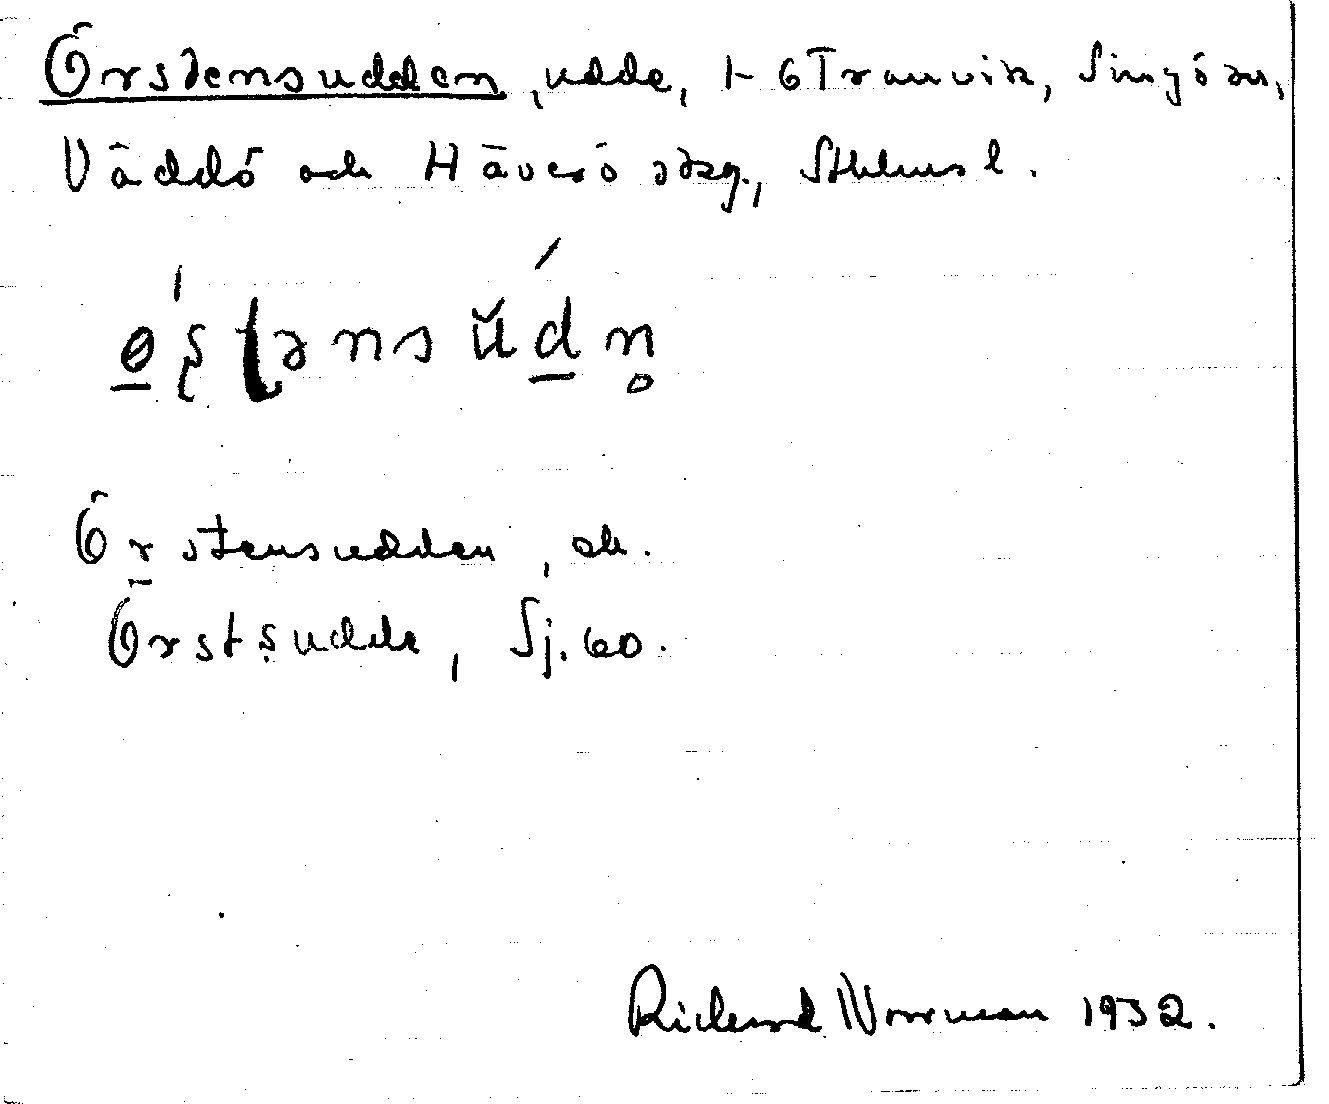 Örstensudden, udde, 1-6 Tranvik, Singö sn,
Väddö och Häverö skg., Sthlms l.
Örstensudden, ek.
Örstsudde, Sj. 60.
Richard Norrman 1932.